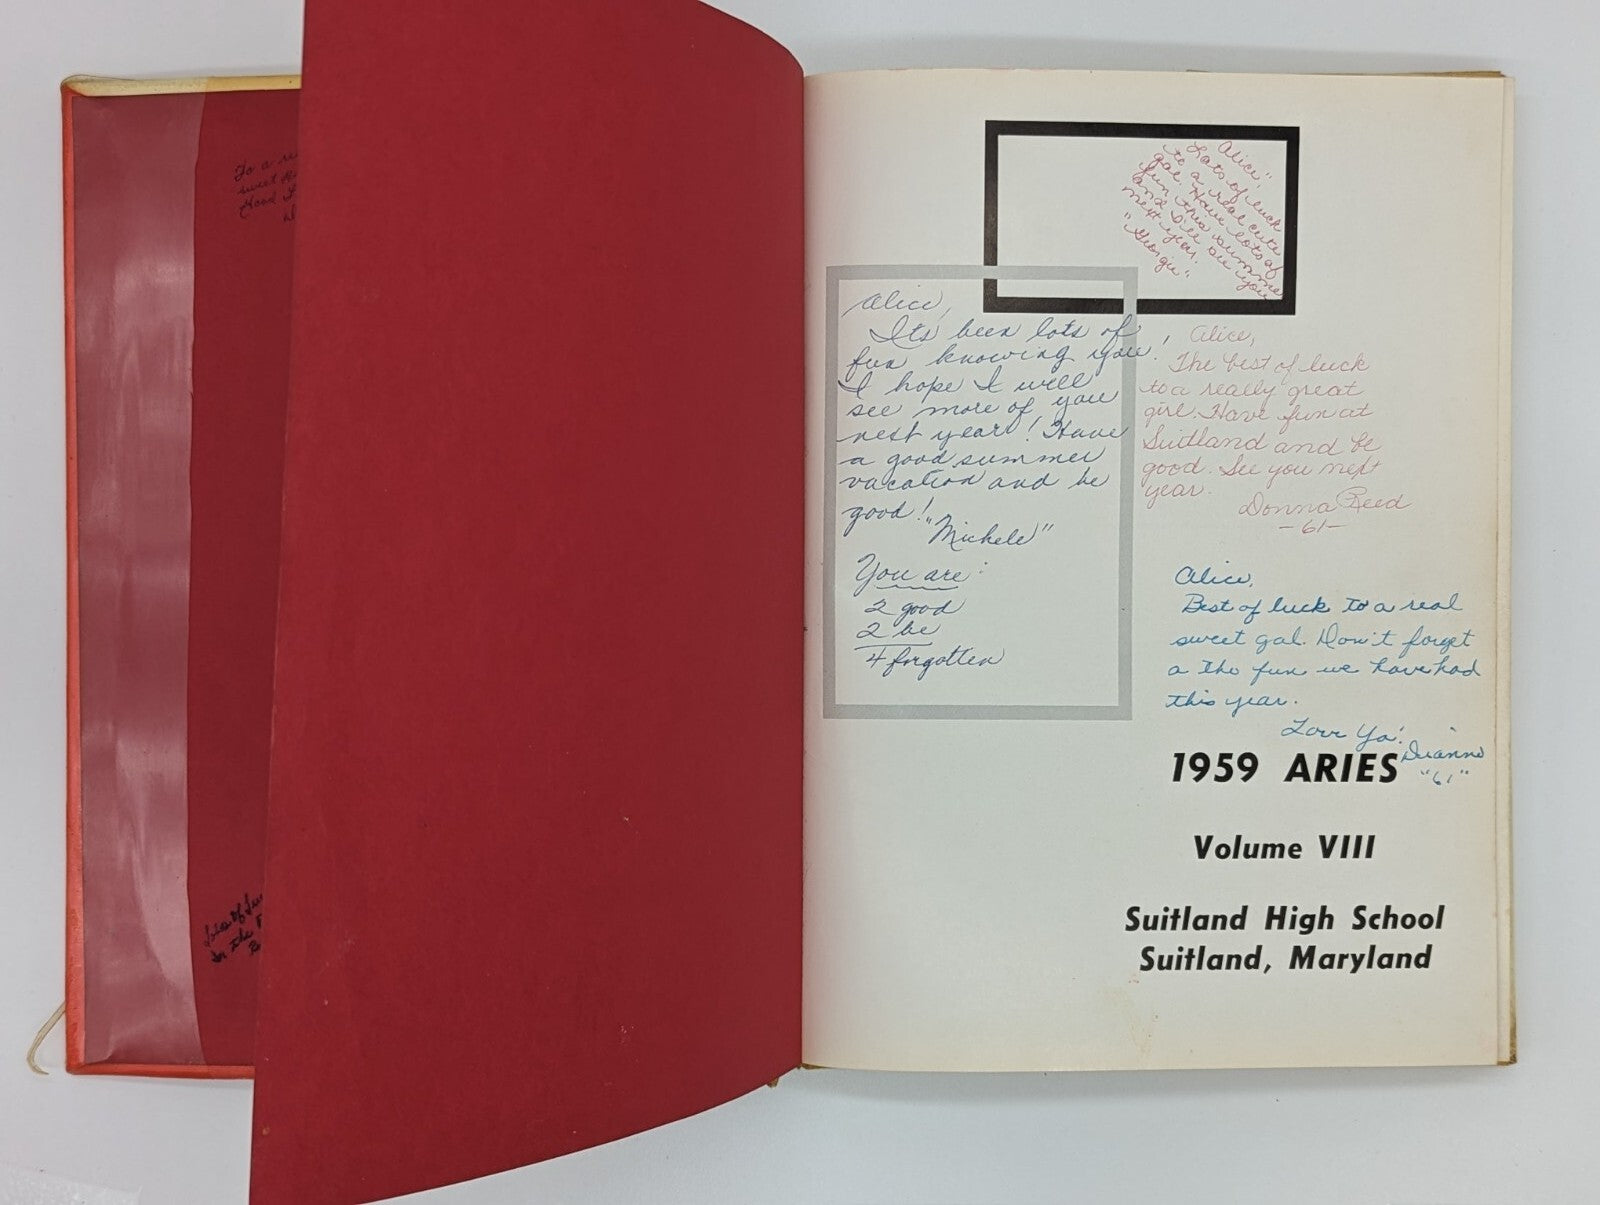 To a
sweet
Good
Lots of
in the
Alice,"
Lots of luck
to a real cute
gal. Have lots of
fun this summe
and I'll see you
next year.
"Georgie"
Alice,
Its been lots of
fun knowing you!
I hope I will
see more of you
next year! Have
a good summer
vacation and be
good!
"Michele"
You are:
2 good
2 be
4 forgotten
Alice,
The best of luck
to a really great
girl. Have fun at
Suitland and be
good. See you next
year.
Donna Reed
-61-
Alice,
Best of luck to a real
sweet gal. Don't forget
a the fun we have had
this year.
Love Ya!
Dianne
"61"
1959 ARIES
Volume VIII
Suitland High School
Suitland, Maryland